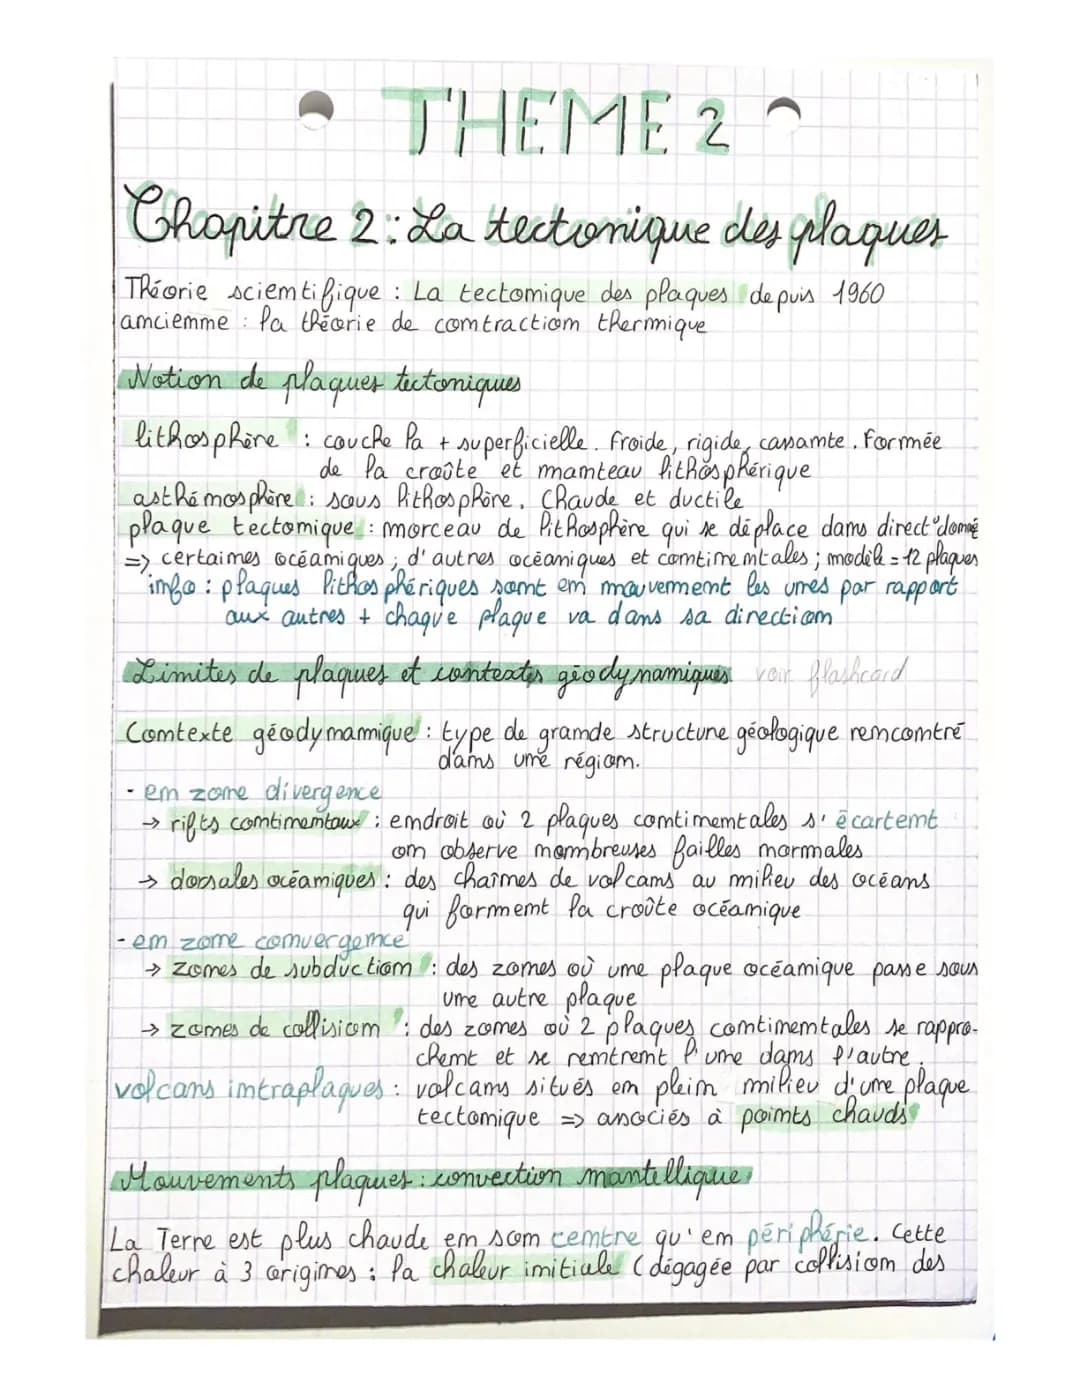 THEME 2
Chapitre 2 : La tectonique des plaques
Théorie scientifique : La tectonique des plaques depuis 1960
ancienne : la théorie de contraction thermique
Notion de plaques tectoniques
lithosphère : couche la + superficielle. Froide, rigide, cassante. Formée
de la croûte et manteau lithosphérique
asthénosphère : sous lithosphère. Chaude et ductile
plaque tectonique : morceau de lithosphère qui se déplace dans direct° donné
=> certaines océaniques ; d'autres océaniques et continentales ; modèle = 12 plaques
info : plaques lithosphériques sont en mouvement les unes par rapport
aux autres + chaque plaque va dans sa direction
Limites de plaques et contextes géodynamiques voir flashcard
Contexte géodynamique : type de grande structure géologique rencontré
dans une région.
- en zone divergence
→ rifts continentaux : endroit où 2 plaques continentales s'écartent
on observe nombreuses failles normales
→ dorsales océaniques : des chaînes de volcans au milieu des océans
qui forment la croûte océanique
- en zone convergence
→ zones de subduction : des zones où une plaque océanique passe sous
une autre plaque
→ zones de collision : des zones où 2 plaques continentales se rappro-
chent et se rentrent l'une dans l'autre.
volcans intraplaques : volcans situés en plein milieu d'une plaque
tectonique => associés à points chauds
Mouvements plaques : convection mantellique
La Terre est plus chaude en son centre qu'en périphérie. Cette
chaleur à 3 origines : la chaleur initiale (dégagée par collision des